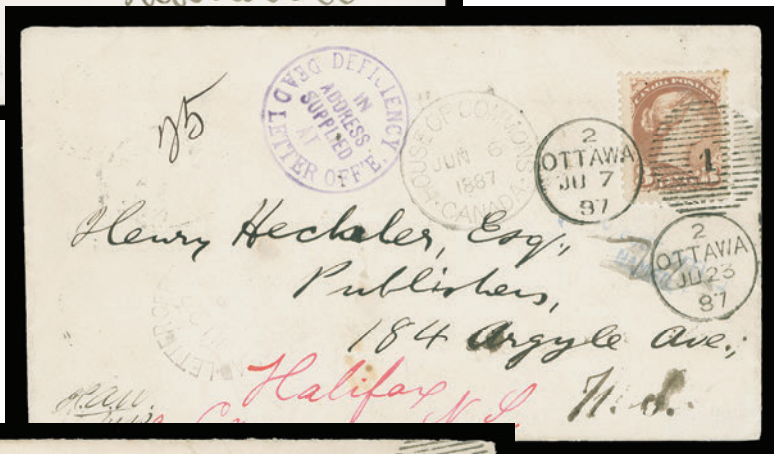 DEFICIENCY
IN
ADDRESS
SUPPLIED
AT
DEAD LETTER OFF'E.
HOUSE OF COMMONS
JUN 6
1887
CANADA
2
OTTAWA
JU 7
87
1
2
OTTAWA
JU 23
87
25
Henry Hechler, Esq.,
Publishers,
184 Argyle Ave.,
Halifax N.S.
N.S.
LETTER